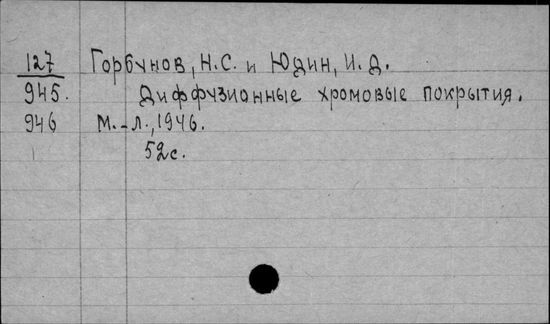 127 Горбунов, Н.С. и Юдин, И.Д.
945. Диффузионные хромовые покрытия.
946 М.-Л., 1946.
52с.